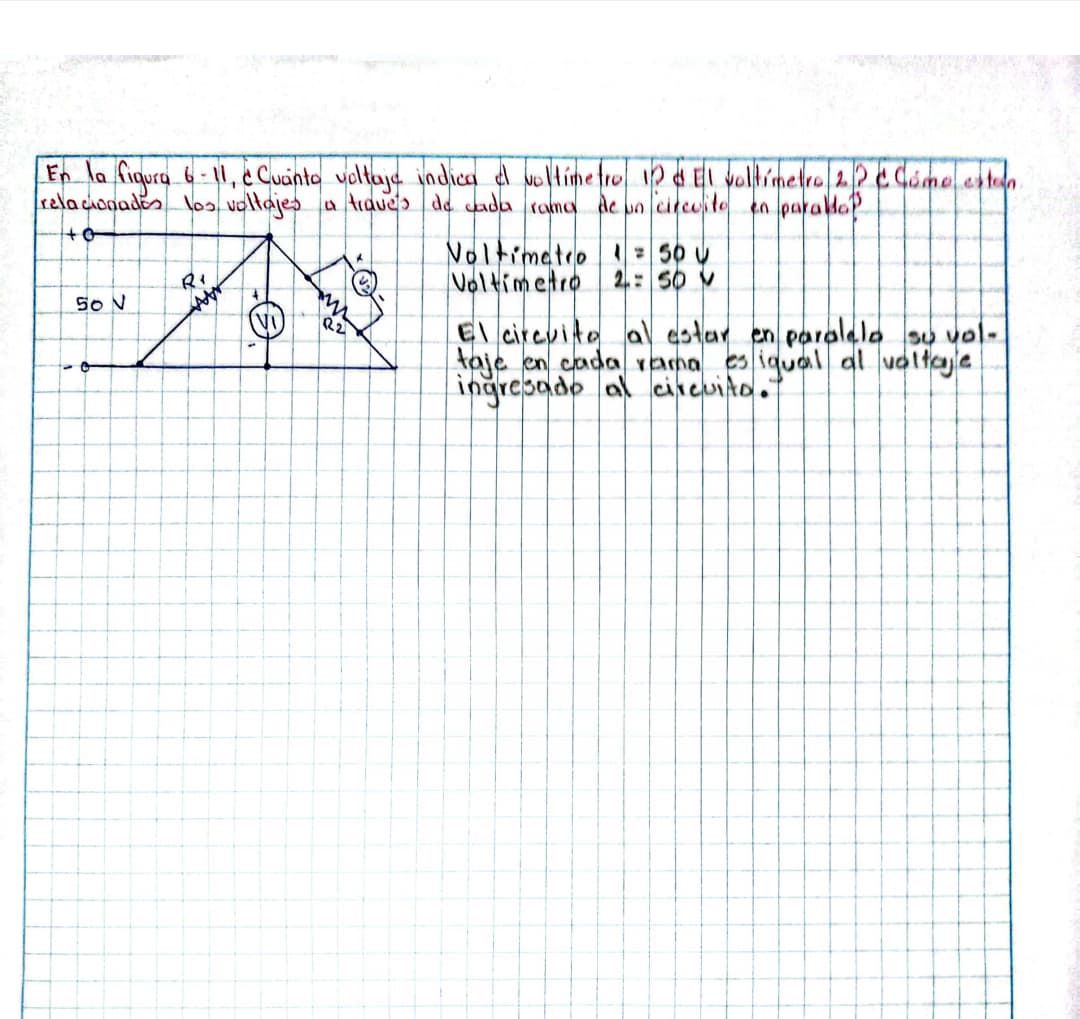 En la figura 6-11, ¿Cuánto voltaje indica el voltímetro 1? ¿El voltímetro 2? ¿Cómo estan
relacionados los voltajes a través de cada rama de un circuito en paralelo?
+
Voltímetro 1 = 50 V
R1
V2
Voltímetro 2 = 50 V
50 V
+
V1
R2
-
El circuito al estar en paralelo su vol-
taje en cada rama es igual al voltaje
-
ingresado al circuito.